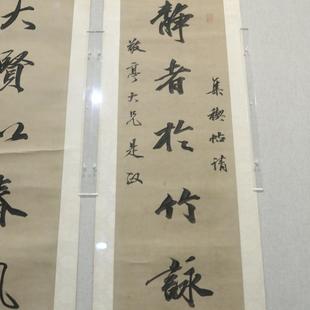 集禊帖請
靜者於竹詠
敬亭大兄是政
大賢以春風